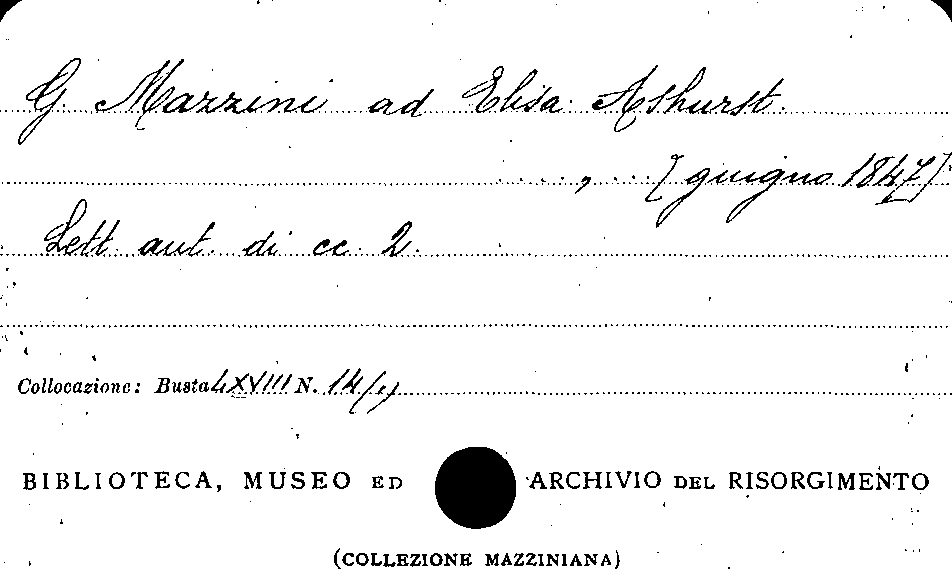 G. Mazzini ad Elisa Ashurst.
...., ... [giugno 1847]
Lett. aut. di cc. 2.
Collocazione: Busta LXVIII N. 14/
BIBLIOTECA, MUSEO ED ARCHIVIO DEL RISORGIMENTO
(COLLEZIONE MAZZINIANA)